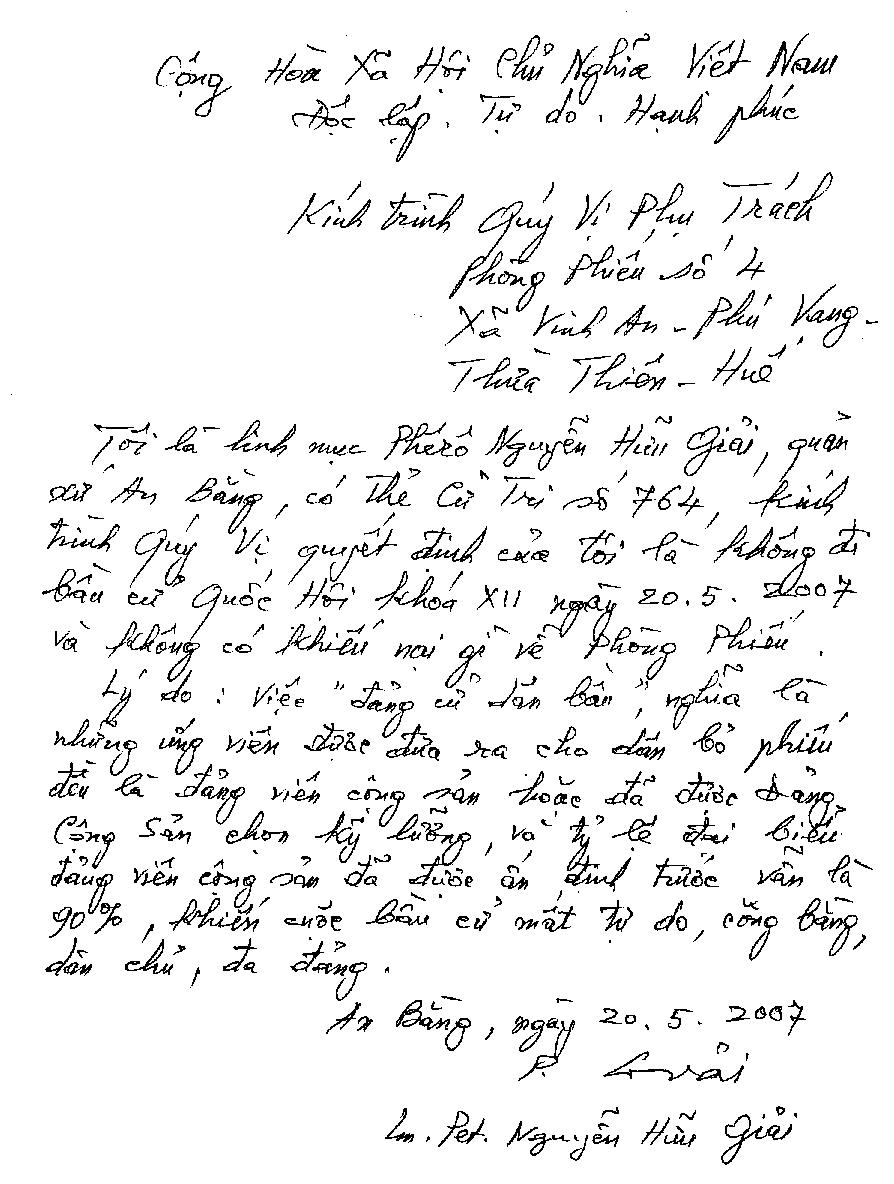 Cộng Hoà Xã Hội Chủ Nghĩa Việt Nam
Độc lập. Tự do. Hạnh phúc
Kính trình Quý Vị Phụ Trách
Phòng Phiếu số 4
Xã Vinh An - Phú Vang -
Thừa Thiên - Huế
Tôi là linh mục Phêrô Nguyễn Hữu Giải, quản
xứ An Bằng, có thẻ Cử Tri số 764, kính
trình Quý Vị quyết định của tôi là không đi
bầu cử Quốc Hội khoá XII ngày 20.5.2007
và không có khiếu nại gì về Phòng Phiếu.
Lý do : việc "đảng cử dân bầu", nghĩa là
những ứng viên được đưa ra cho dân bỏ phiếu
đều là đảng viên cộng sản hoặc đã được Đảng
Cộng Sản chọn kỹ lưỡng, và tỷ lệ đại biểu
đảng viên cộng sản đã được ấn định trước vẫn là
90%, khiến cuộc bầu cử mất tự do, công bằng,
dân chủ, đa đảng.
An Bằng, ngày 20.5.2007
P. Giải
Lm. Pet. Nguyễn Hữu Giải